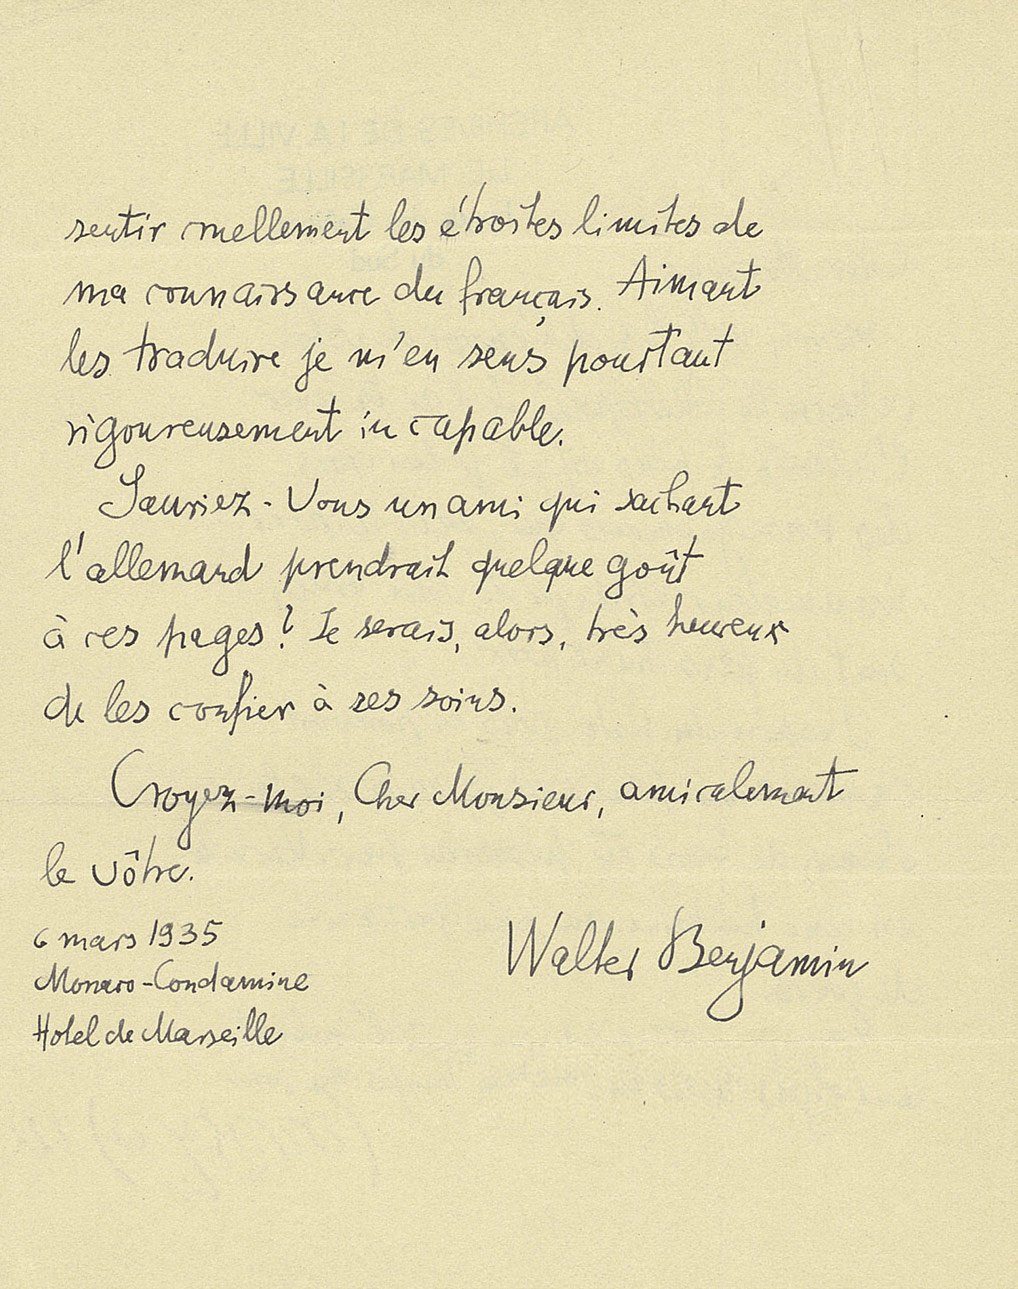 sentir cruellement les étroites limites de
ma connaissance du français. Aimant
les traduire je m'en sens pourtant
rigoureusement incapable.
Sauriez-Vous un ami qui sachant
l'allemand prendrait quelque goût
à ces pages? Je serais, alors, très heureux
de les confier à ses soins.
Croyez-moi, Cher Monsieur, amicalement
le vôtre.
6 mars 1935
Monaco-Condamine
Hotel de Marseille
Walter Benjamin